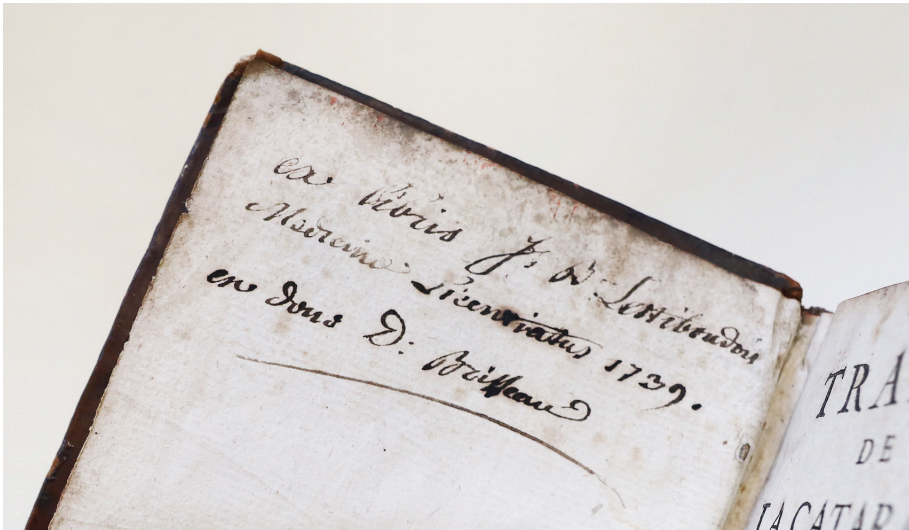 ex libris J. B. Lestiboudois
Medicinae Licentiatus 1739.
ex dono D: Brisseau
TRA
DE
LACATAR